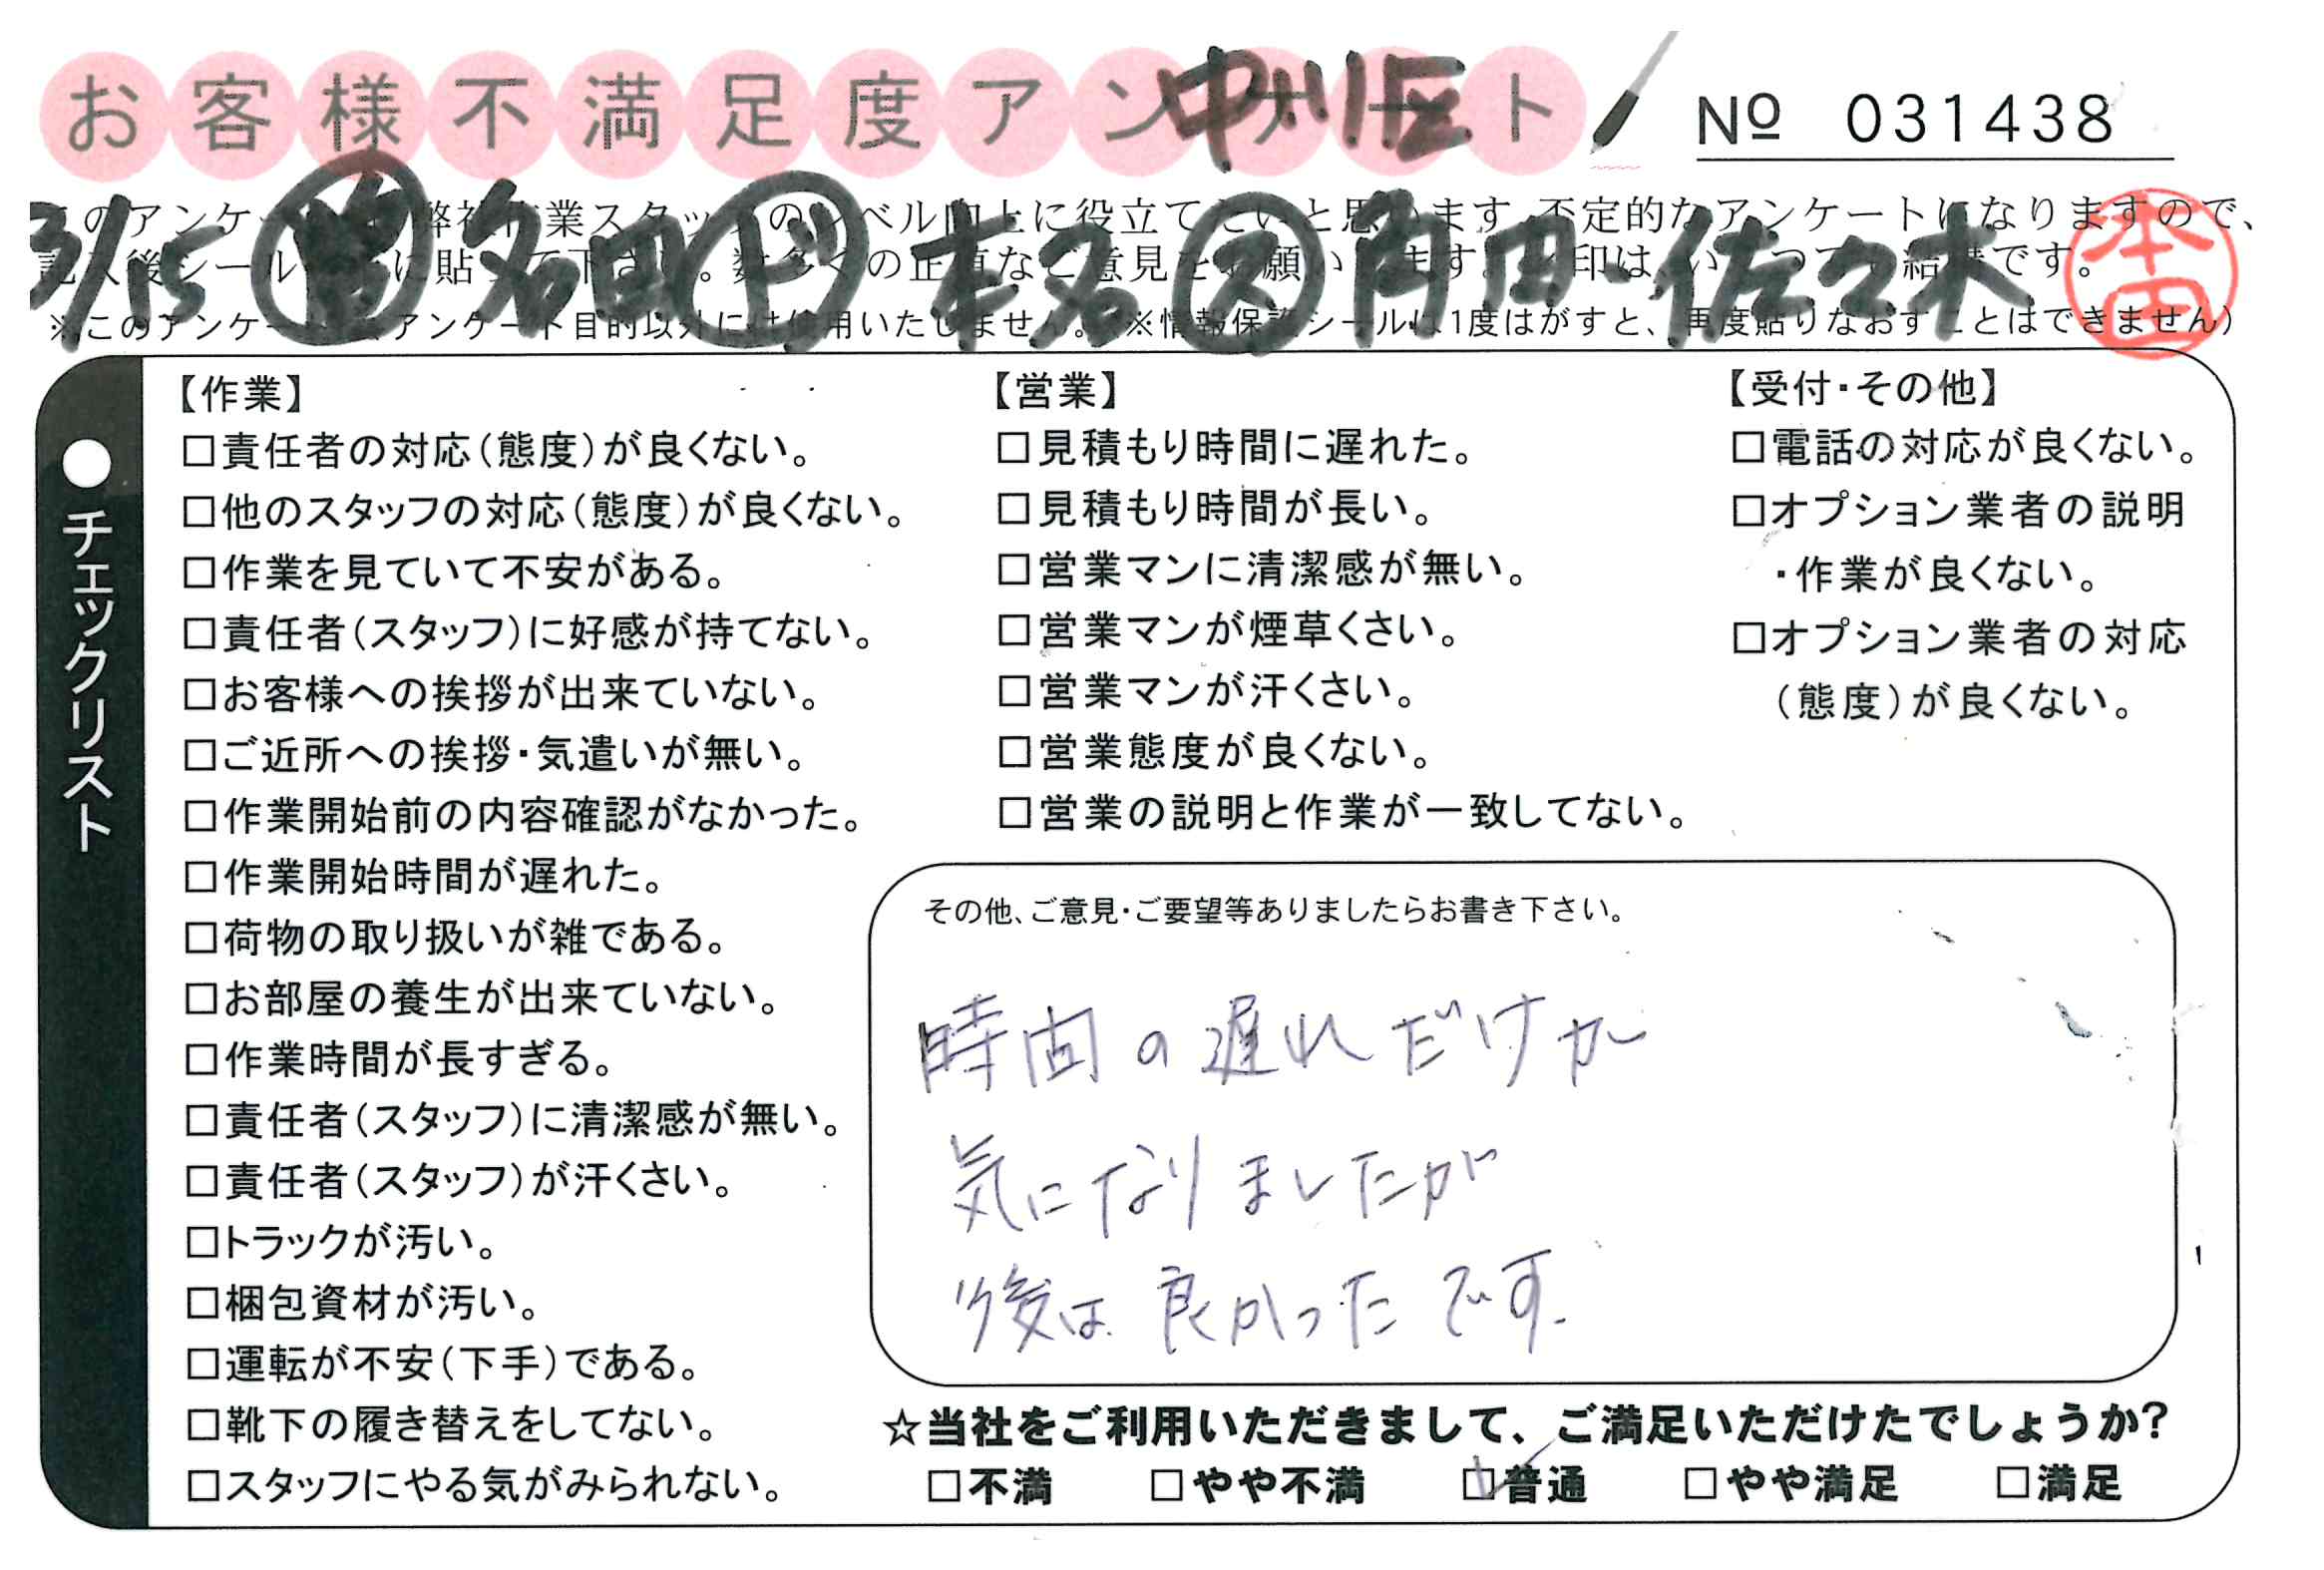 お客様不満足度アンケート
中川店
№ 031438
3/15 営 名田 ド 本名 ス 角田・佐々木
本田
このアンケートは、弊社作業スタッフのレベル向上に役立てたいと思います。不定的なアンケートになりますので、
記入後シールを に貼って下さい。数多くの正直なご意見をお願いします。 印は、いくつでも結構です。
※このアンケートは、アンケート目的以外には使用いたしません。(※情報保護シールは1度はがすと、再度貼りなおすことはできません)
●チェックリスト
【作業】
□責任者の対応(態度)が良くない。
□他のスタッフの対応(態度)が良くない。
□作業を見ていて不安がある。
□責任者(スタッフ)に好感が持てない。
□お客様への挨拶が出来ていない。
□ご近所への挨拶・気遣いが無い。
□作業開始前の内容確認がなかった。
□作業開始時間が遅れた。
□荷物の取り扱いが雑である。
□お部屋の養生が出来ていない。
□作業時間が長すぎる。
□責任者(スタッフ)に清潔感が無い。
□責任者(スタッフ)が汗くさい。
□トラックが汚い。
□梱包資材が汚い。
□運転が不安(下手)である。
□靴下の履き替えをしてない。
□スタッフにやる気がみられない。
【営業】
□見積もり時間に遅れた。
□見積もり時間が長い。
□営業マンに清潔感が無い。
□営業マンが煙草くさい。
□営業マンが汗くさい。
□営業態度が良くない。
□営業の説明と作業が一致してない。
【受付・その他】
□電話の対応が良くない。
□オプション業者の説明
・作業が良くない。
□オプション業者の対応
(態度)が良くない。
その他、ご意見・ご要望等ありましたらお書き下さい。
時間の遅れだけが
気になりましたが
後は良かったです.
☆当社をご利用いただきまして、ご満足いただけたでしょうか?
□不満 □やや不満 ☑普通 □やや満足 □満足